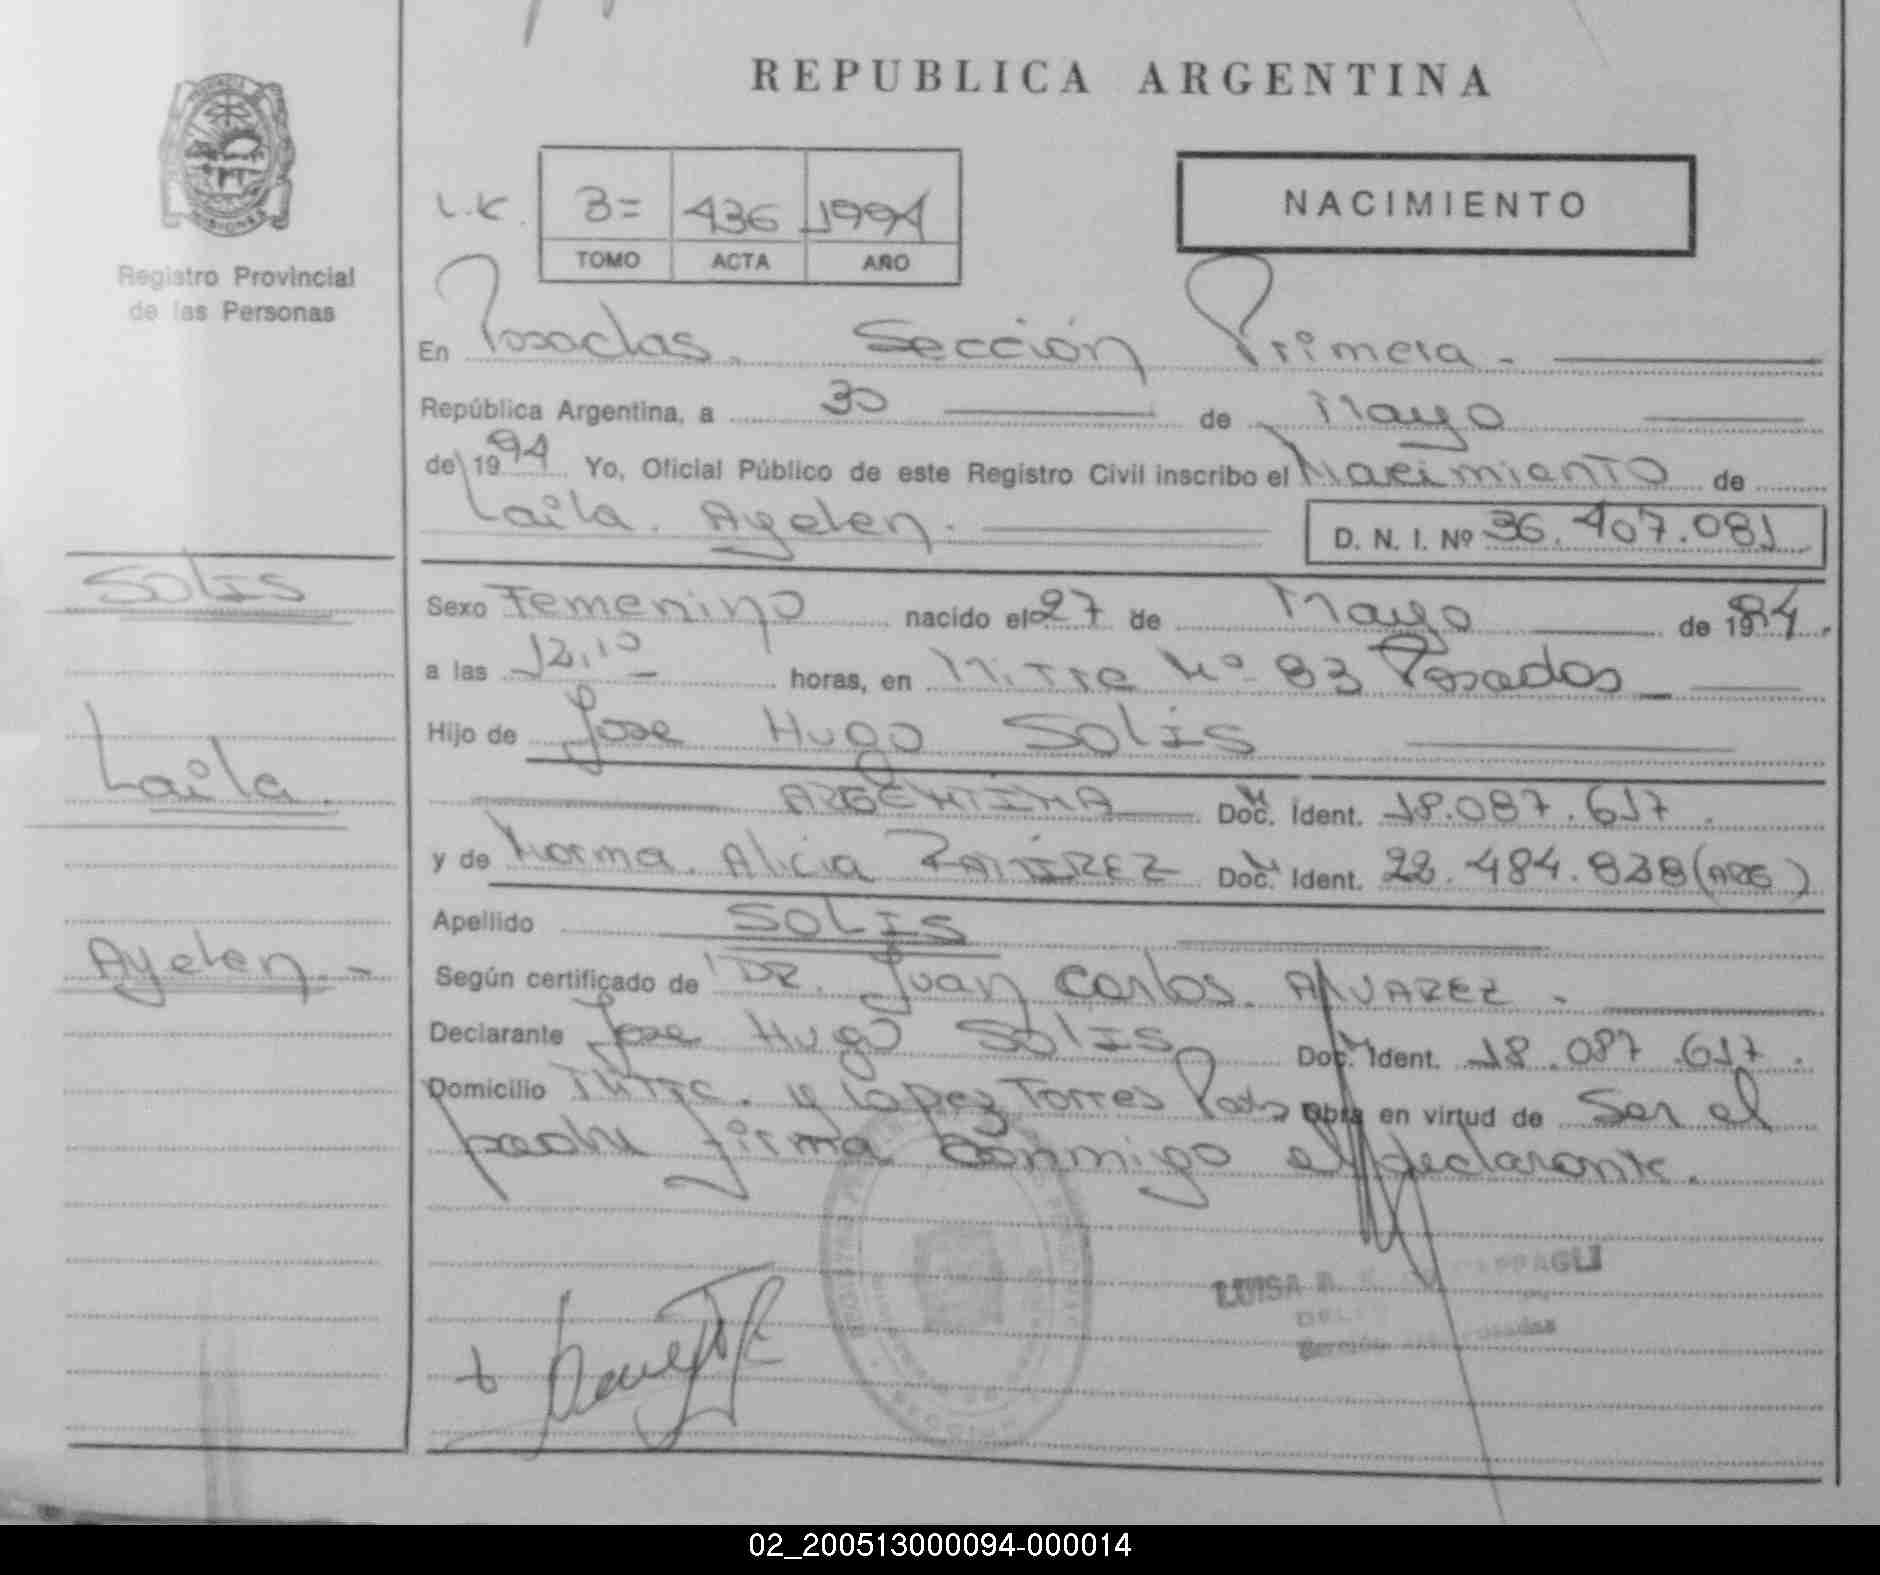 REPUBLICA ARGENTINA
Registro Provincial
de las Personas
L.K. 3= 436 1994
TOMO ACTA AÑO
NACIMIENTO
En Posadas. Sección Primera.-
República Argentina, a 30 de Mayo
de 1994 Yo, Oficial Público de este Registro Civil inscribo el Nacimiento de
Laila. Ayelen.
D. N. I. Nº 36.407.081
Sexo Femenino nacido el 27 de Mayo de 1994.
a las 12,10 horas, en Mitre Nº 83 Posadas
Hijo de Jose Hugo Solis
ARGENTINA Doc. Ident. 18.087.617.
y de Norma. Alicia RAMIREZ Doc. Ident. 22.484.828 (ARG)
Apellido SOLIS
Según certificado de DR. Juan Carlos. ALVAREZ.
Declarante Jose Hugo SOLIS Doc. Ident. 18.087.617.
Domicilio y Lopez Torres Pdas Obra en virtud de Ser el
padre firma conmigo el declarante.
LUISA
SOLIS
Laila.
Ayelen.-
02_200513000094-000014